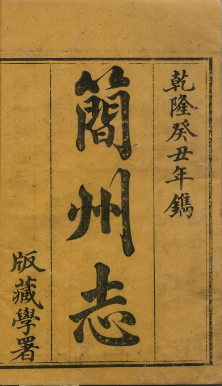 乾隆癸丑年鐫
簡州志
版藏學署